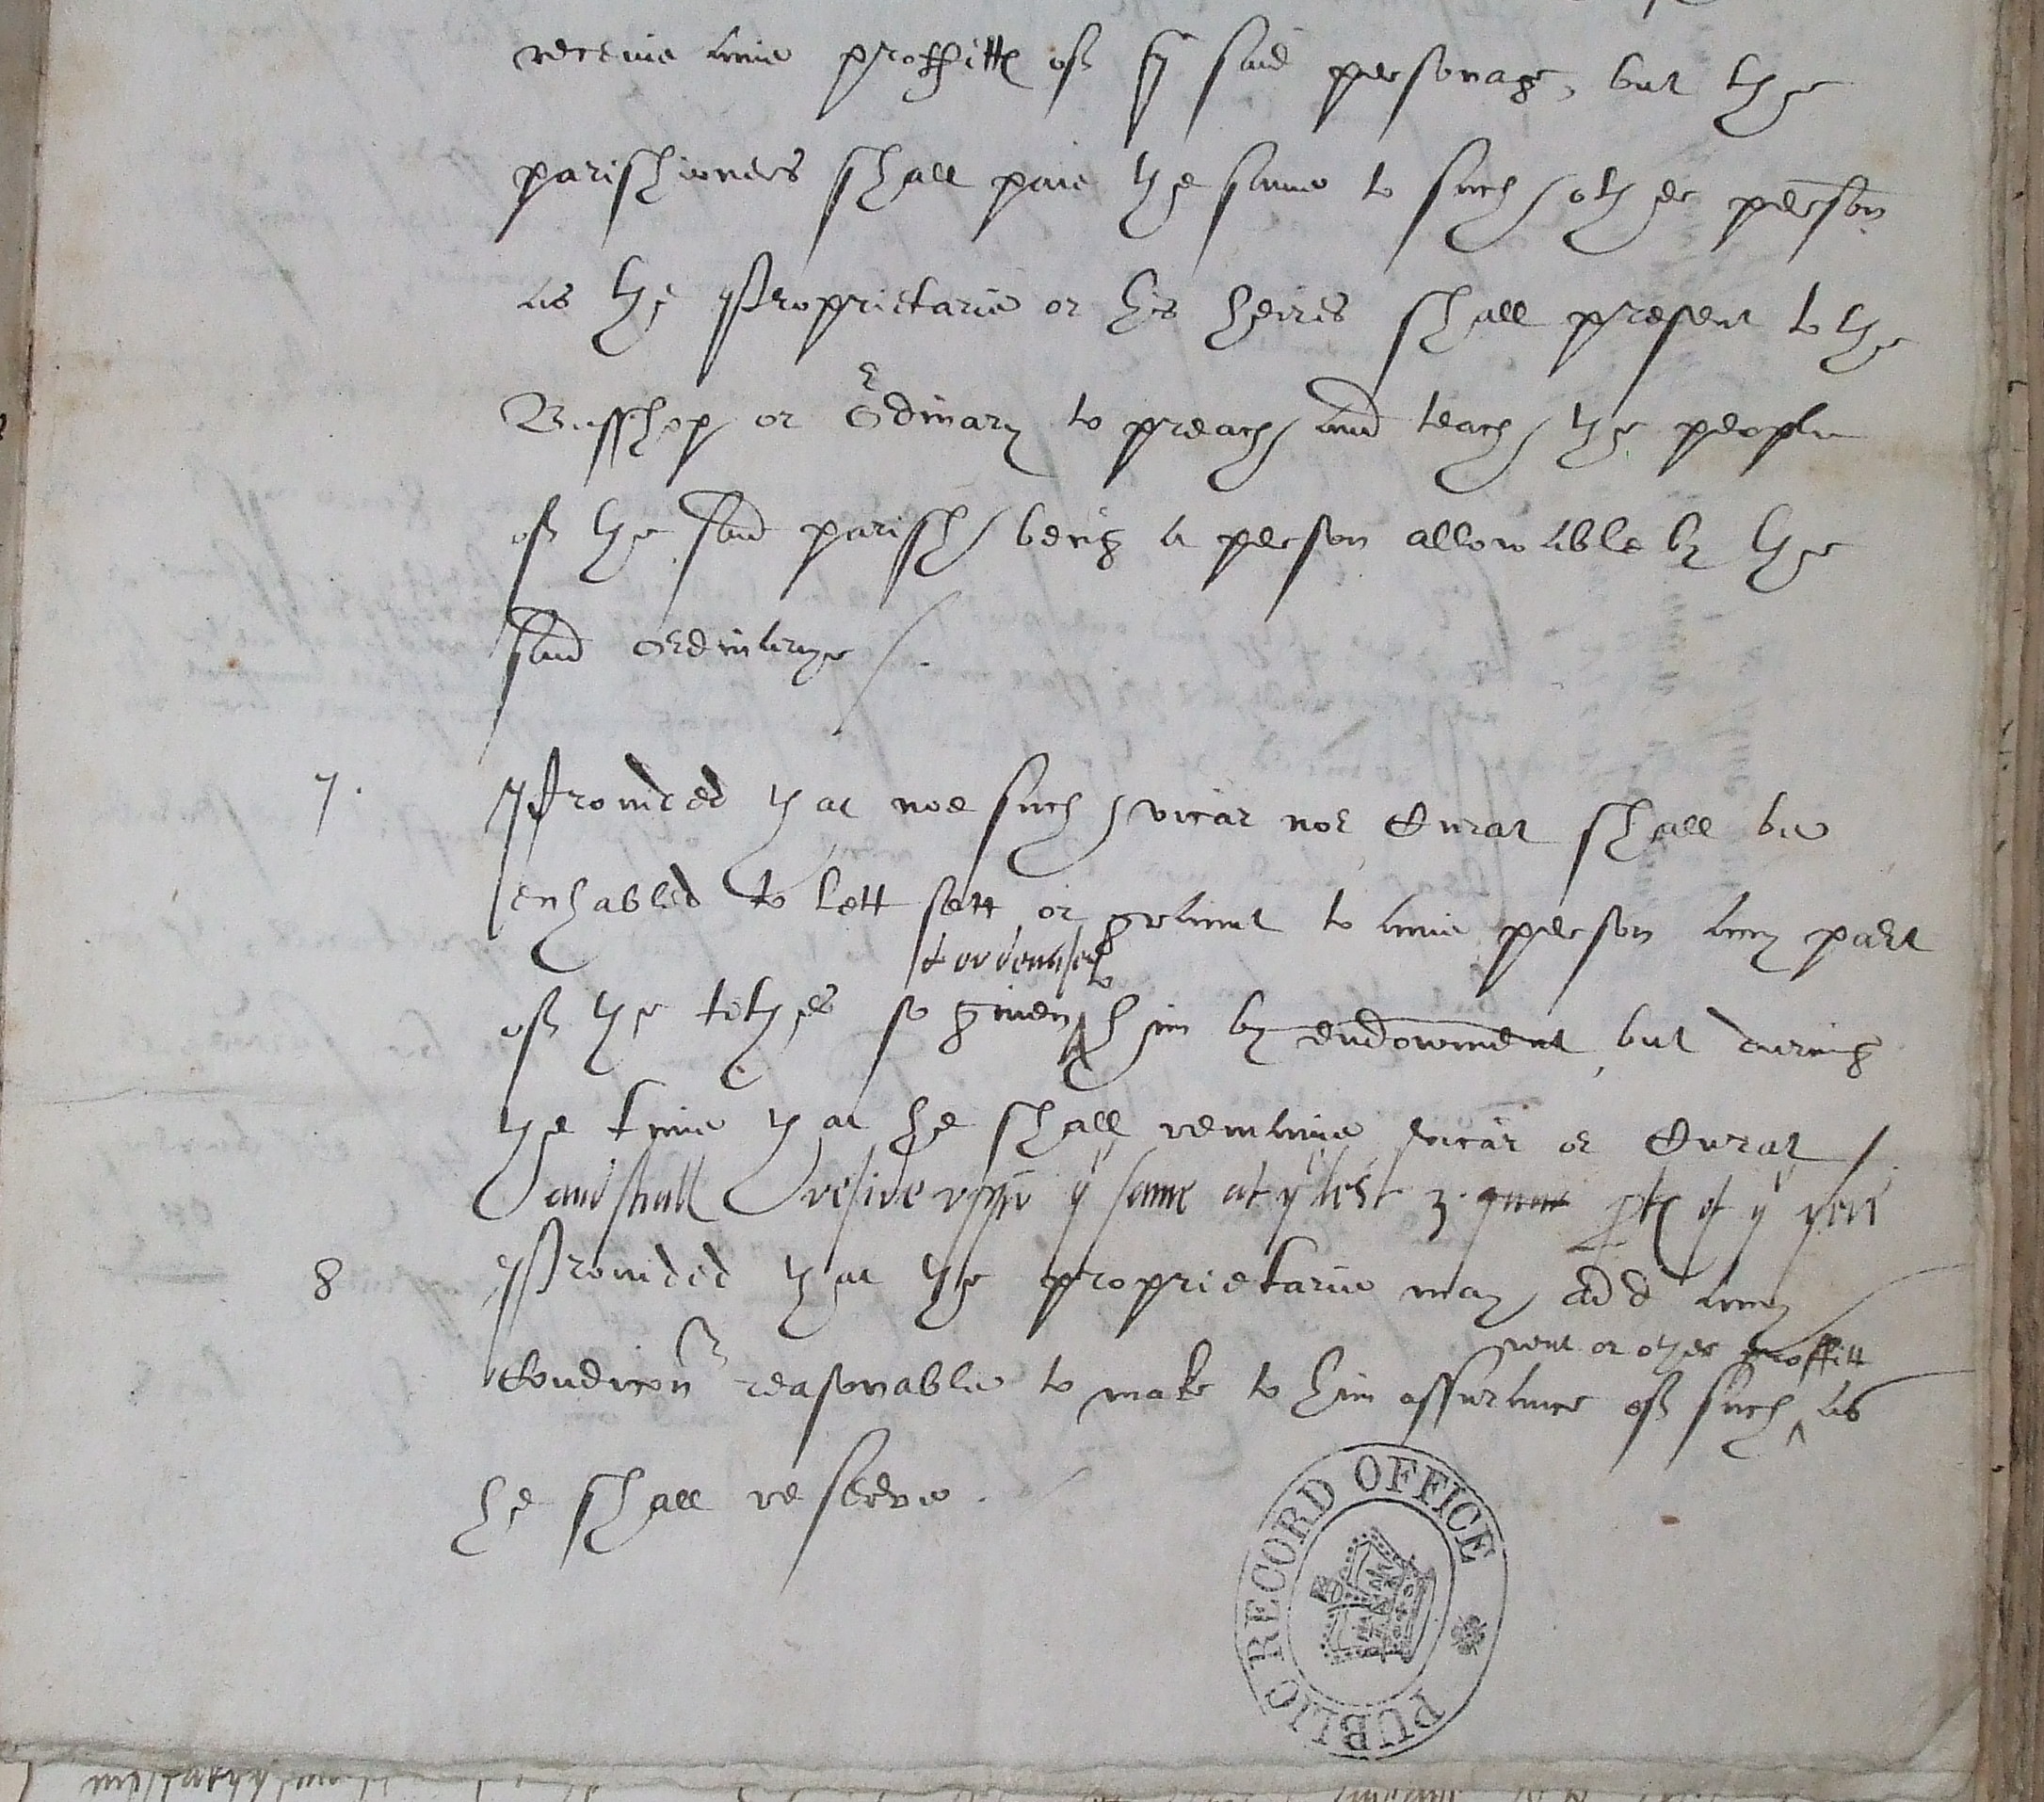 receiue anie proffittes of ye said personage, but the
parishioners shall paie the same to such other person
as the Proprietarie or his heires shall present to the
Busshop or Ordinary to preach and teach the people
of the said parish being a person allowable by the
said Ordinarye /.
7. Prouided that noe such vicar nor Curat shall be
enhabled to lett sett or graunt to anie person any part
to
of the tithes so giuen him by endowment, but during
the time that he shall remaine vicar or Curat /.
and shall reside vppon ye same at ye lest 3. ptes of ye yere
8 Prouided that the proprietarie may add any
rent or other proffitt
Condicon reasonable to make to him assurance of such ^ as
he shall reserue.
PUBLIC RECORD OFFICE